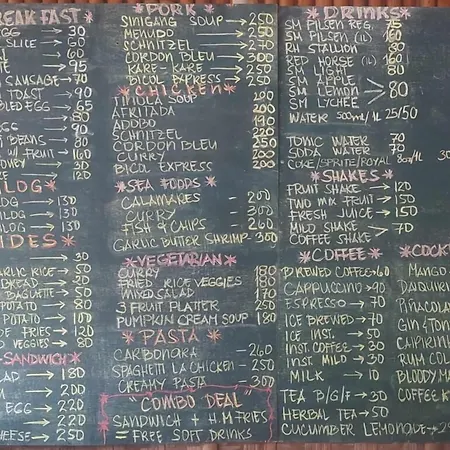 BREAKFAST
EGG → 30
SLICE → 60
→ 60
→ 95
SAUSAGE → 70
TOAST → 90
BLED EGG → 65
→ 80
EGG → 90
BEANS → 80
W/ FRUIT → 160
→ 30
→ 120
LOG → 130
LOG → 130
LOG → 130
IDES ✶
→ 30
ARLIC RICE → 50
BREAD → 20
BAGUETTE → 50
POTATO → 100
FRIES → 120
VEGGIES → 80
-SANDWICH ✶
→ 180
→ 200
EGG → 220
→ 220
HEESE → 250
✶ PORK ✶
SINIGANG SOUP → 250
MENUDO → 250
SCHNITZEL → 270
CORDON BLEU → 300
KARE KARE → 250
BICOL EXPRESS → 250
✶ CHICKEN ✶
TINOLA SOUP 200
AFRITADA 200
ADOBO 200
SCHNITZEL 250
CORDON BLEU 250
CURRY 200
BICOL EXPRESS 200
✶ SEA FOODS ✶
CALAMARES - 200
CURRY - 300
FISH & CHIPS - 260
GARLIC BUTTER SHRIMP - 300
✶ VEGETARIAN ✶
CURRY 180
FRIED RICE VEGGIES 180
MIXED SALAD 170
3 FRUIT PLATTER 250
PUMPKIN CREAM SOUP 180
✶ PASTA ✶
CARBONARA - 260
SPAGHETTI LA CHICKEN - 250
CREAMY PASTA - 300
"COMBO DEAL"
SANDWICH + H.M FRIES
= FREE SOFT DRINKS
✶ DRINKS ✶
PILSEN REG. 75
SM PILSEN (1L) 160
RH STALLION 80
RED HORSE (1L) 160
SM LIGHT 80
SM APPLE
SM LEMON > 80
SM LYCHEE
WATER 500ml/1L 25/50
TONIC WATER 70
SODA WATER 70
COKE/SPRITE/ROYAL
✶ SHAKES ✶
FRUIT SHAKE → 120
TWO MIX FRUIT → 150
FRESH JUICE → 150
MILD SHAKE > 70
COFFEE SHAKE
✶ COFFEE ✶
BREWED COFFEE → 60
CAPPUCCINO → 90
ESPRESSO → 70
ICE BREWED → 70
ICE INST. → 50
INST. COFFEE → 30
INST. MILD → 30
MILK → 10
TEA B/G/F → 30
HERBAL TEA → 50
CUCUMBER LEMONADE →
COCK
MANGO
DAIQUIRI
PIÑACOLA
GIN & TON
CAIPIRIN
RUM COL
BLOODY MA
COFFEE K